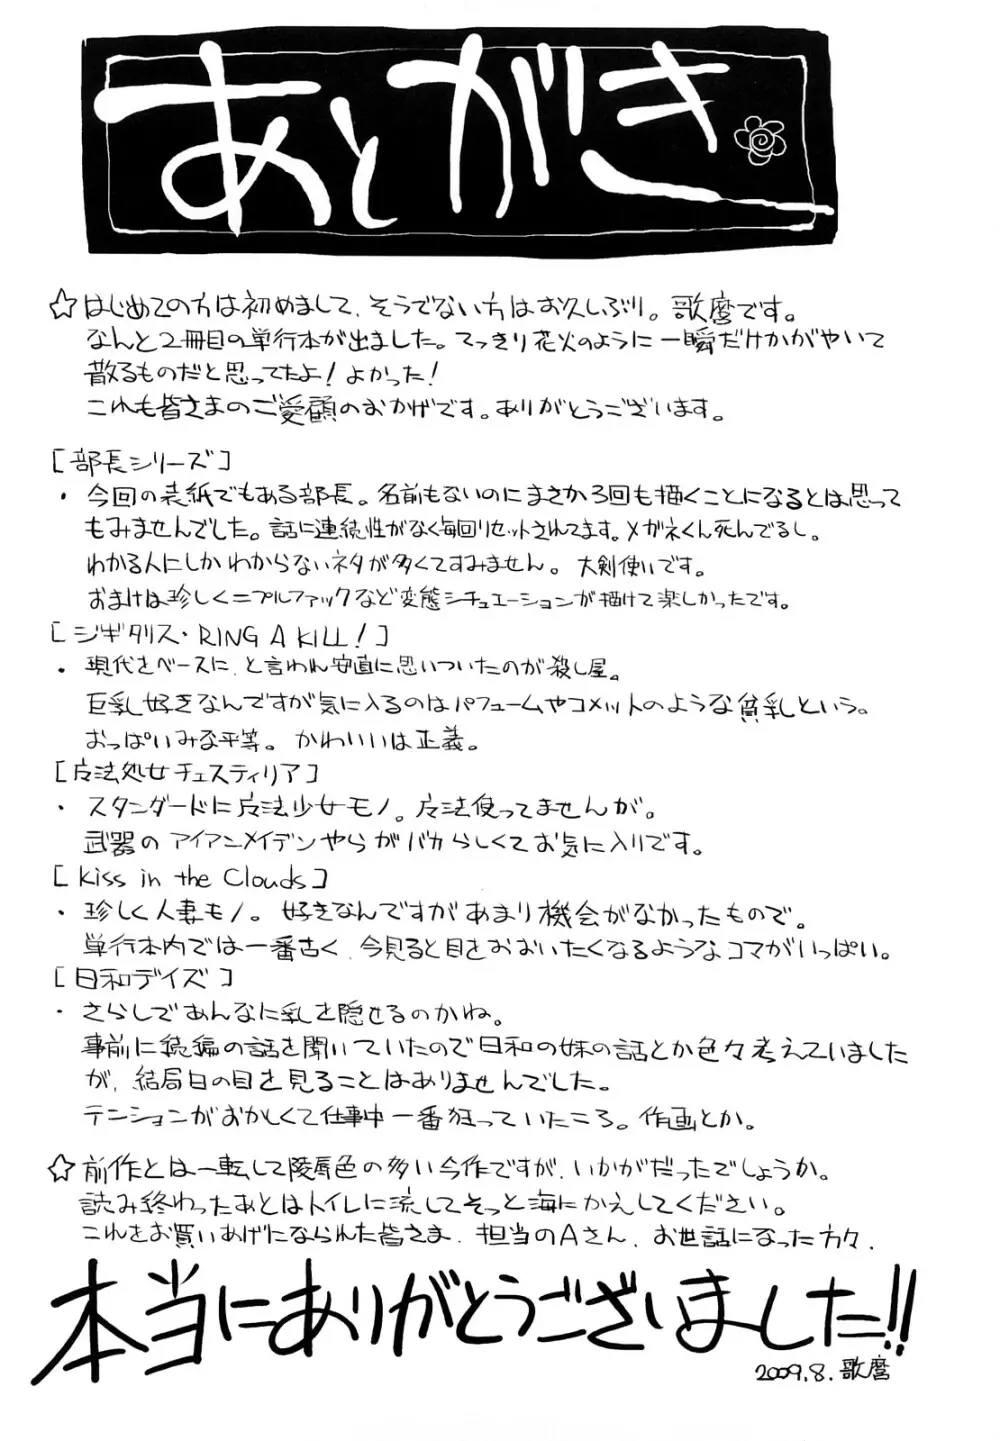 あとがき
☆はじめての方は初めまして、そうでない方はお久しぶり。歌麿です。
なんと2冊目の単行本が出ました。てっきり花火のように一瞬だけかがやいて
散るものだと思ってたよ!よかった!
これも皆さまのご愛顧のおかげです。ありがとうございます。
[部長シリーズ]
・今回の表紙でもある部長。名前もないのにまさか3回も描くことになるとは思って
もみませんでした。話に連続性がなく毎回リセットされてます。メガネくん死んでるし。
わかる人にしかわからないネタが多くてすみません。大剣使いです。
おまけは珍しくニプルファックなど変態シチュエーションが描けて楽しかったです。
[ジギタリス・RING A KILL!]
・現代をベースに、と言われ安直に思いついたのが殺し屋。
巨乳好きなんですが気に入るのはパフュームやコメットのような貧乳という。
おっぱいみな平等。かわいいは正義。
[魔法処女チェスティリア]
・スタンダードに魔法少女モノ。魔法使ってませんが。
武器のアイアンメイデンやらがバカらしくてお気に入りです。
[Kiss in the Clouds]
・珍しく人妻モノ。好きなんですがあまり機会がなかったもので。
単行本内では一番古く、今見ると目をおおいたくなるようなコマがいっぱい。
[日和デイズ]
・さらしであんなに乳を隠せるのかね。
事前に続編の話を聞いていたので日和の妹の話とか色々考えていました
が、結局日の目を見ることはありませんでした。
テンションがおかしくて仕事中一番狂っていたころ。作画とか。
☆前作とは一転して陵辱色の多い今作ですが、いかがだったでしょうか。
読み終わったあとはトイレに流してそっと海にかえしてください。
これをお買いあげになられた皆さま、担当のAさん、お世話になった方々、
本当にありがとうございました!!
2009.8.歌麿